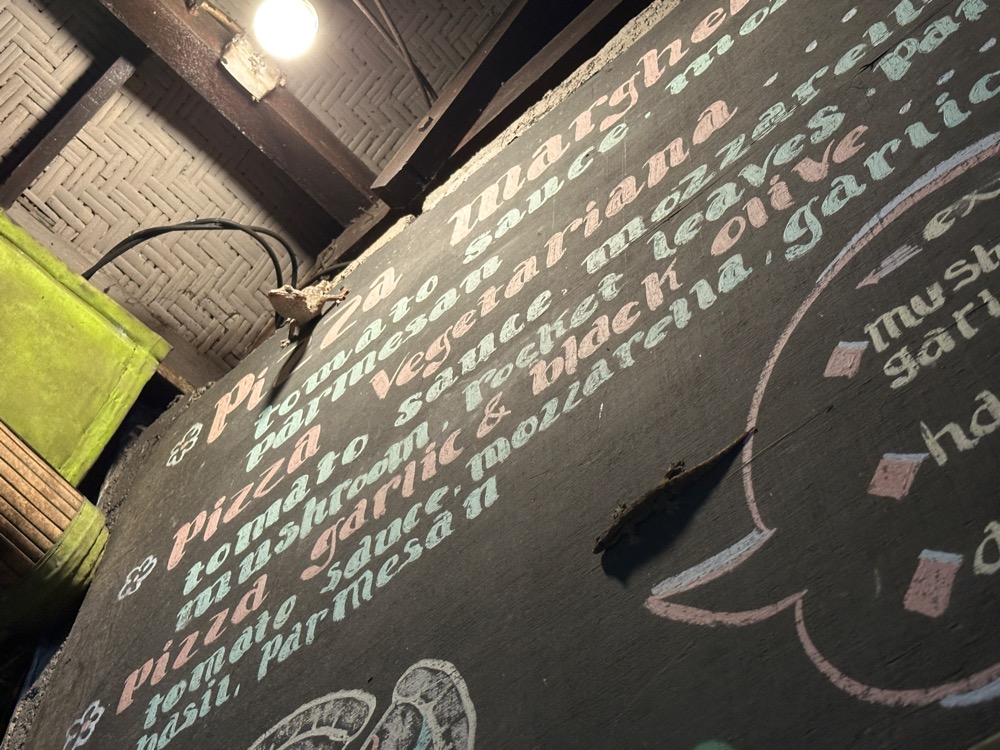 Pizza margher
tomato sauce. moz
parmesan
Pizza vegetariana
tomato sauce. mozzarella
mushroom. rocket leaves. par
Pizza garlic & black olive
tomato sauce. mozzarella, garlic
basil. parmesan
ex
mush
garl